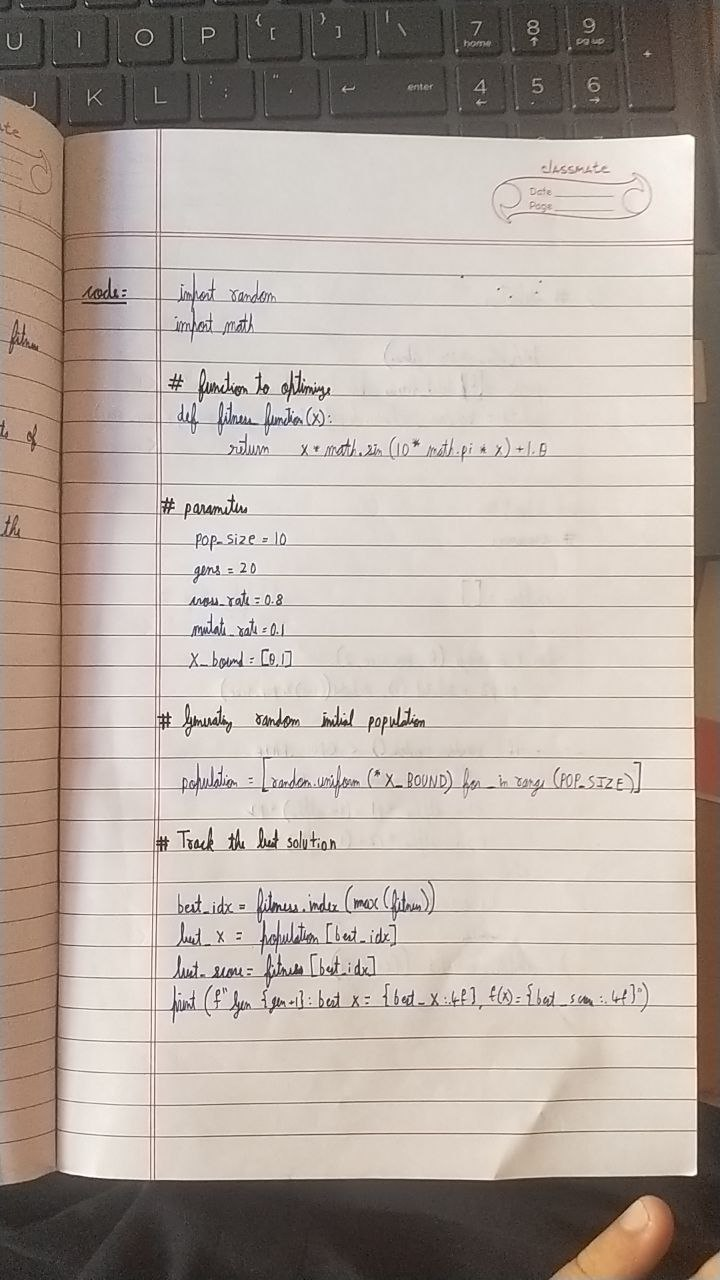 U I O P { [ } ] | \ 7 home 8 9 pg up +
J K L : ; " , enter 4 5 6
te
classmate
Date
Page
code:
import random
fitness
import math
# function to optimize
def fitness function (x):
ts of
return x * math.sin (10 * math.pi * x) + 1.0
# parameters
the
pop_size = 10
gens = 20
cross_rate = 0.8
mutate_rate = 0.1
X_bound = [0,1]
# Generating random initial population
population = [random.uniform (* X_BOUND) for _ in range (POP_SIZE)]
# Track the best solution
best_idx = fitness.index (max (fitness))
best_x = population [best_idx]
best_score = fitness [best_idx]
print (f" Gen {gen+1}: best x = {best_x:.4f}, f(x) = {best_score:.4f}")